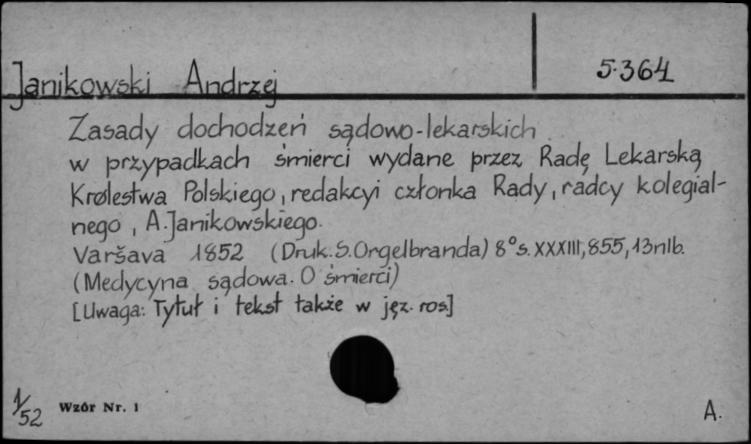 Janikowski Andrzej
5.364
Zasady dochodzeń sądowo-lekarskich
w przypadkach śmierci wydane przez Radę Lekarską
Królestwa Polskiego, redakcyi członka Rady, radcy kolegial-
nego, A. Janikowskiego.
Varšava 1852 (Druk. S. Orgelbranda) 8° s. XXXIII, 855, 13 nlb.
(Medycyna sądowa. O śmierci)
[Uwaga: Tytuł i tekst także w jęz. ros.]
1/52 Wzór Nr. 1
A.